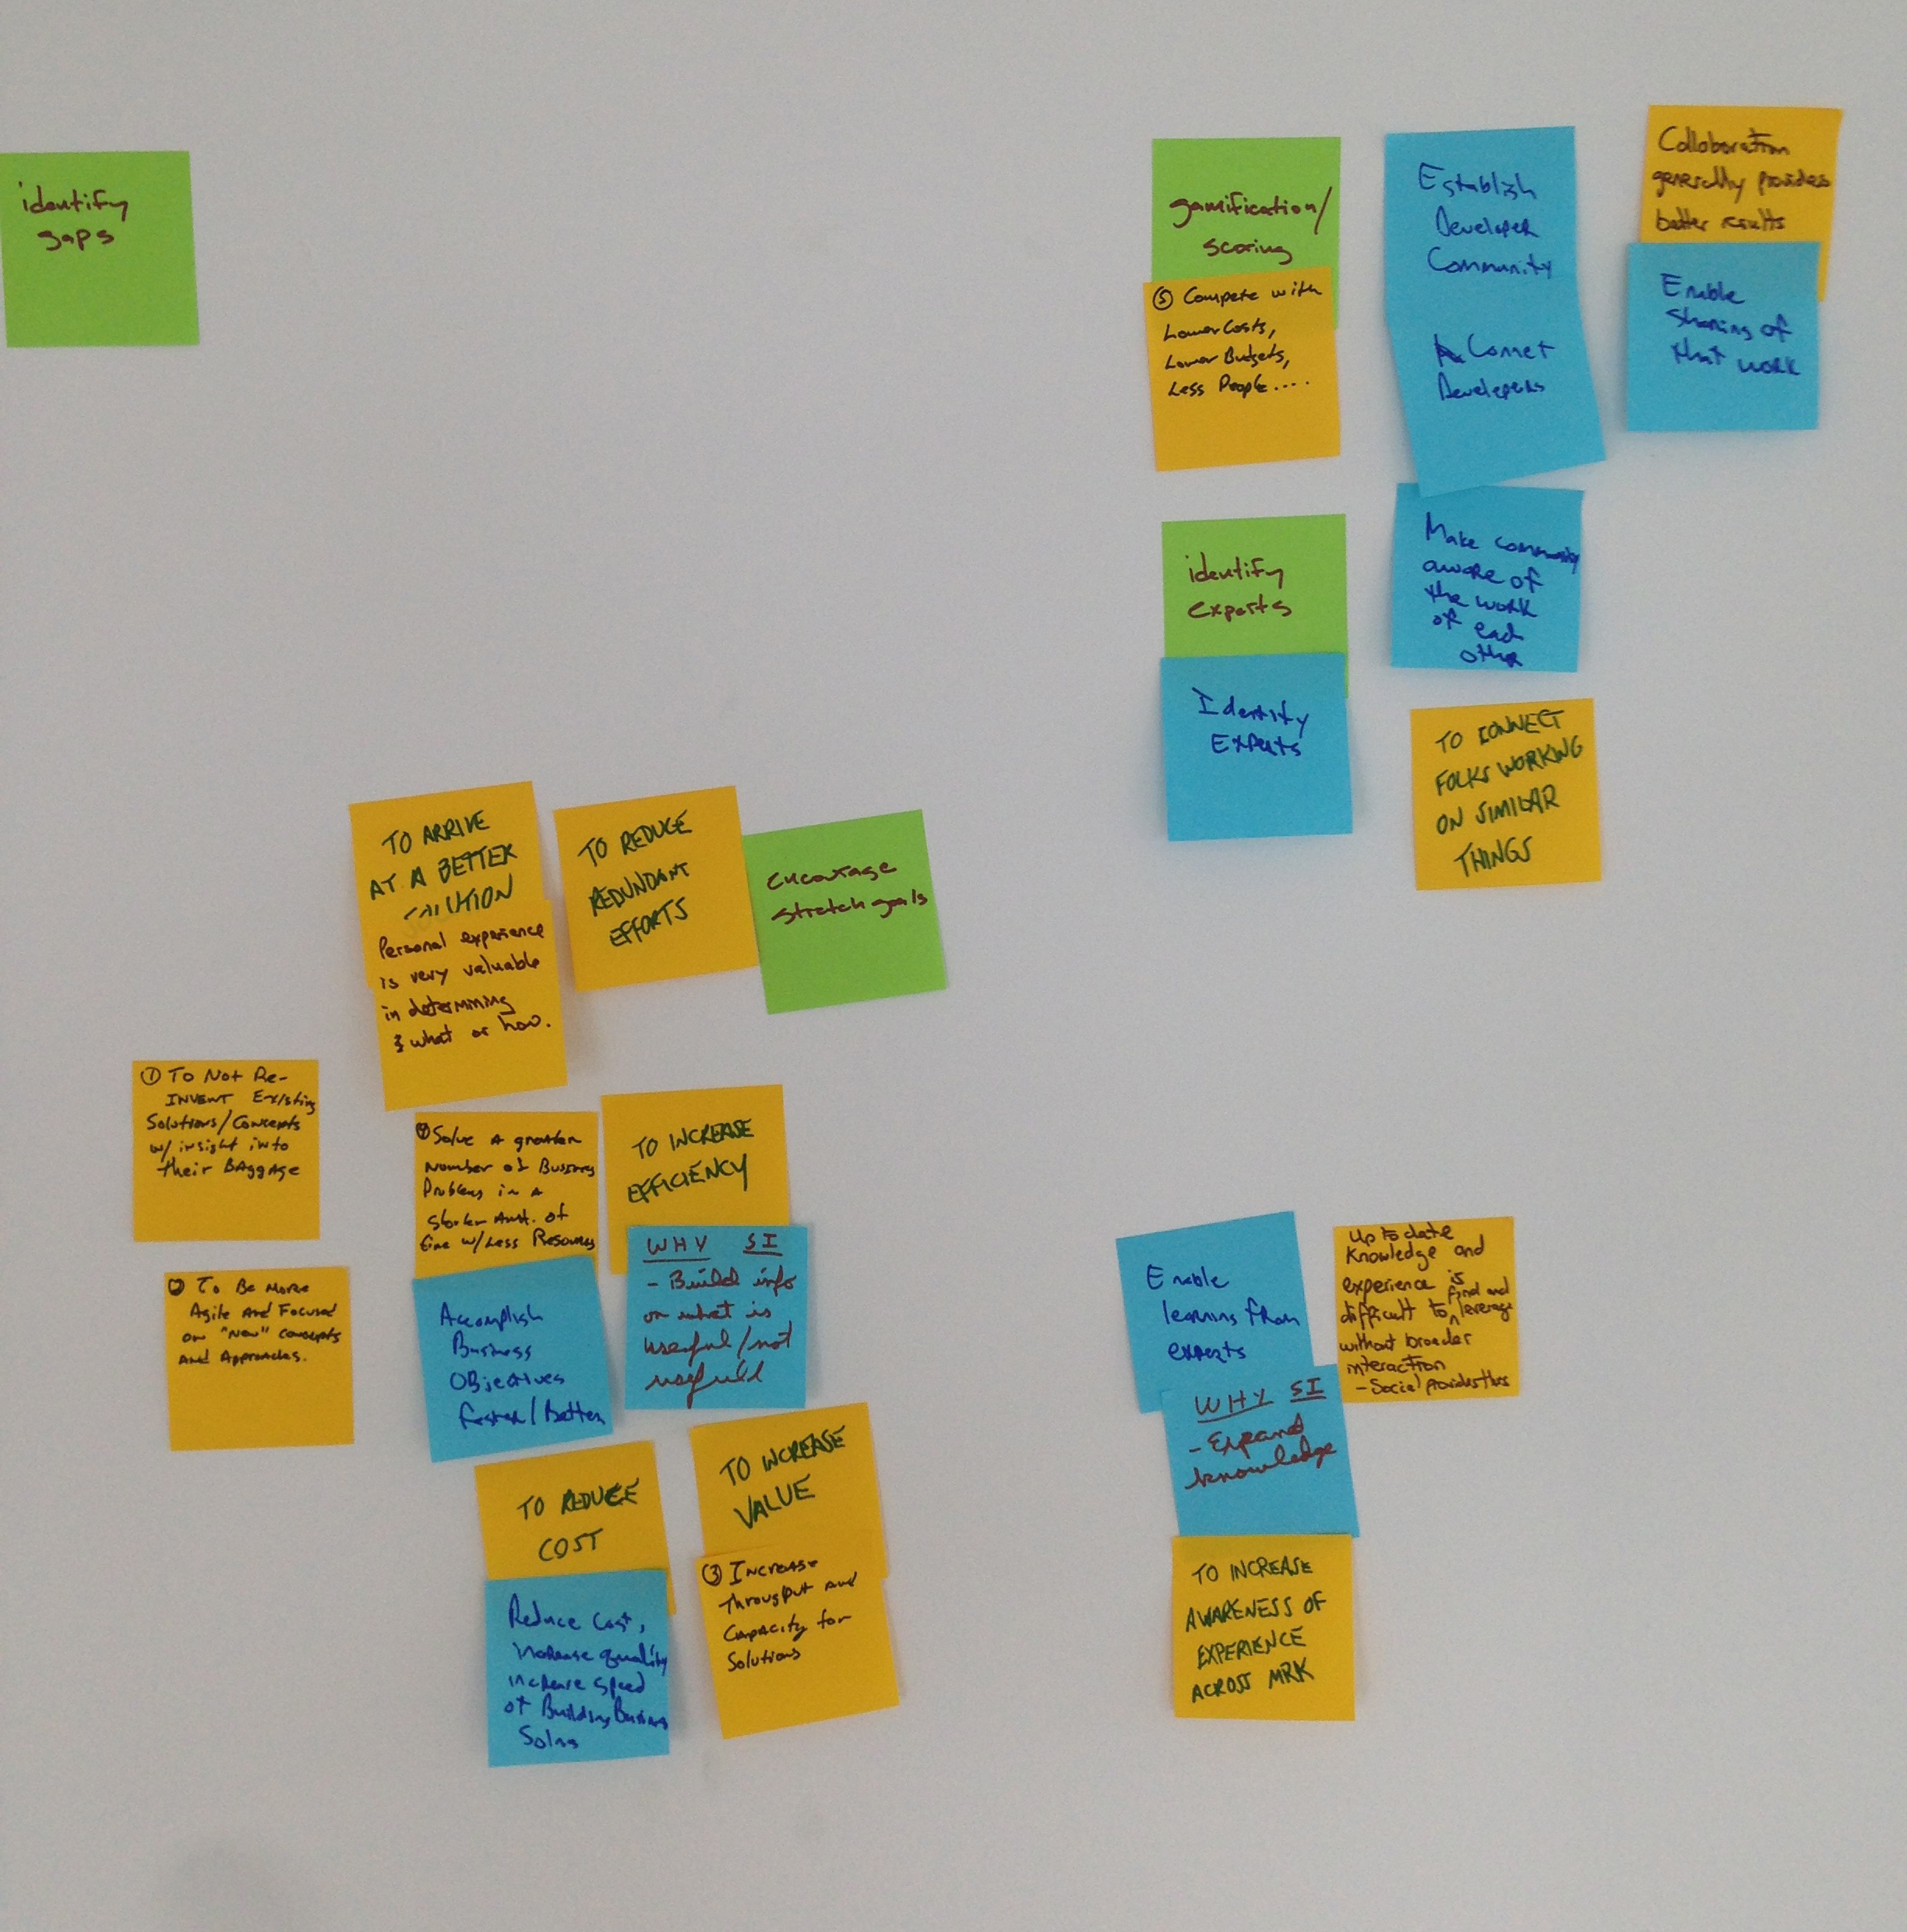 identify
gaps
gamification/
scoring
⑤ Compete with
Lower Costs,
Lower Budgets,
Less People....
Establish
Developer
Community
Comet
Developers
Collaboration
generally provides
better results
Enable
sharing of
that work
identify
experts
Identify
Experts
Make community
aware of
the work
of each
other
TO CONNECT
FOLKS WORKING
ON SIMILAR
THINGS
TO ARRIVE
AT A BETTER
SOLUTION
Personal experience
is very valuable
in determining
what or how.
TO REDUCE
REDUNDANT
EFFORTS
encourage
stretch goals
① To Not Re-
INVENT Existing
Solutions/Concepts
w/ insight into
their BAggAge
② To Be More
Agile And Focused
on "New" concepts
And Approaches.
④ Solve A greater
Number of Business
Problems in A
Shorter Amt. of
time w/Less Resources
TO INCREASE
EFFICIENCY
Accomplish
Business
Objectives
faster/Better
WHY SI
- Build info
on what is
useful/not
usefull
TO REDUCE
COST
Reduce Cost,
increase quality
increase speed
of Building Business
Solns
TO INCREASE
VALUE
③ Increase
Throughput and
Capacity for
Solutions
Enable
learning from
experts
WHY SI
- Expand
knowledge
Up to date
Knowledge and
experience is
difficult to find and leverage
without broader
interaction
- Social provides this
TO INCREASE
AWARENESS OF
EXPERIENCE
ACROSS MRK